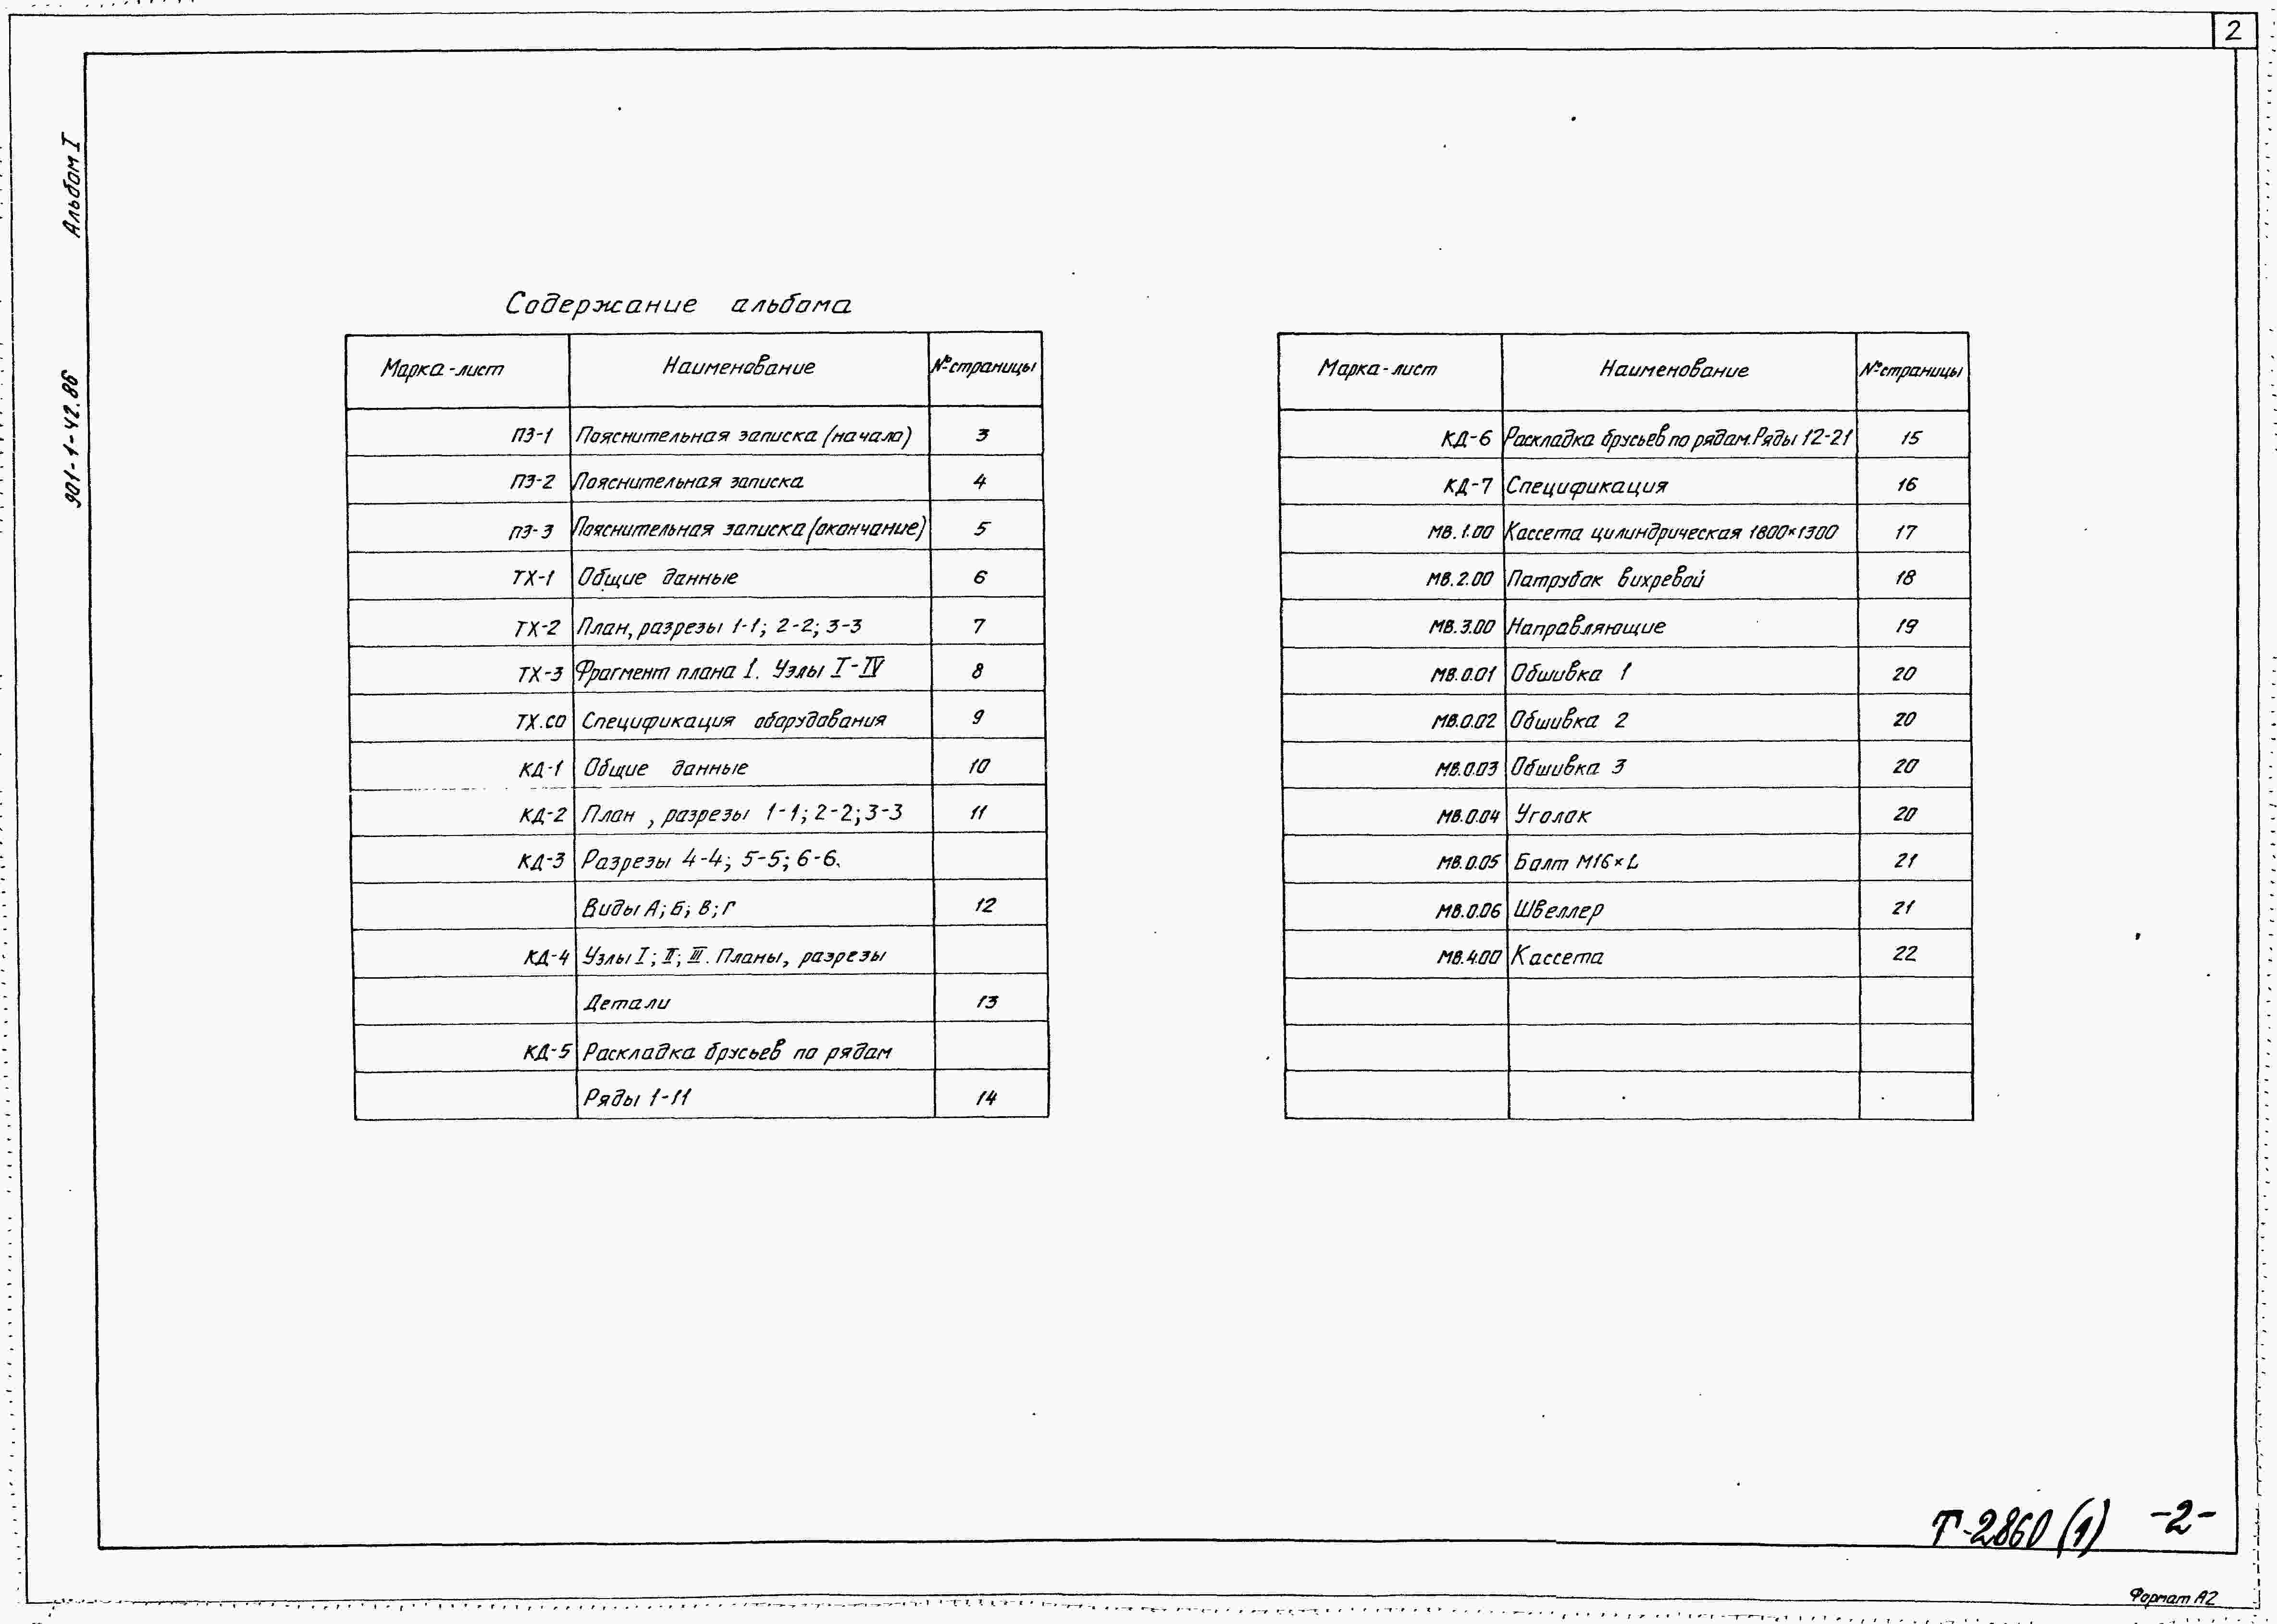 2
Альбом I
901-1-42.86
Содержание альбома
Марка-лист Наименование №страницы
ПЗ-1 Пояснительная записка (начало) 3
ПЗ-2 Пояснительная записка 4
ПЗ-3 Пояснительная записка (окончание) 5
ТХ-1 Общие данные 6
ТХ-2 План, разрезы 1-1; 2-2; 3-3 7
ТХ-3 Фрагмент плана 1. Узлы I-IV 8
ТХ.СО Спецификация оборудования 9
КД-1 Общие данные 10
КД-2 План, разрезы 1-1; 2-2; 3-3 11
КД-3 Разрезы 4-4; 5-5; 6-6.
Виды А; Б; В; Г 12
КД-4 Узлы I; II; III. Планы, разрезы
Детали 13
КД-5 Раскладка брусьев по рядам
Ряды 1-11 14
Марка-лист Наименование №страницы
КД-6 Раскладка брусьев по рядам. Ряды 12-21 15
КД-7 Спецификация 16
МВ.1.00 Кассета цилиндрическая 1800×1300 17
МВ.2.00 Патрубок вихревой 18
МВ.3.00 Направляющие 19
МВ.0.01 Обшивка 1 20
МВ.0.02 Обшивка 2 20
МВ.0.03 Обшивка 3 20
МВ.0.04 Уголок 20
МВ.0.05 Болт М16×L 21
МВ.0.06 Швеллер 21
МВ.4.00 Кассета 22
Т-2860 (1) -2-
Формат А2